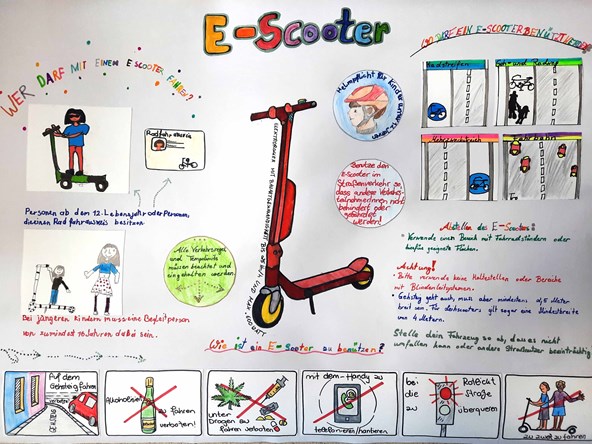 E-Scooter
WER DARF MIT EINEM E-SCOOTER FAHREN?
Radfahrausweis
Personen ab dem 12. Lebensjahr oder Personen,
die einen Radfahrausweis besitzen
Bei jüngeren Kindern muss eine Begleitperson
von zumindest 16 Jahren dabei sein.
Alle Verkehrsregeln
und Tempolimits
müssen beachtet und
eingehalten werden
BIS 25 KM/H UND MAX. 600 WATT
Helmpflicht für Kinder unter 12 Jahren
Benütze den
E-Scooter im
Straßenverkehr so,
dass andere Verkehrs-
teilnehmerInnen nicht
behindert oder
gefährdet
werden!
WO DARF EIN E-SCOOTER BENÜTZT WERDEN
Radstreifen
Geh- und Radweg
Fahrbahn
Abstellen des E-Scooters:
• Verwende einen Bereich mit Fahrradständern oder
hierfür geeignete Flächen.
Achtung!
• Bitte verwende keine Haltestellen oder Bereiche
mit Blindenleitsystemen.
• Gehsteig geht auch, muss aber mindestens 2,5 Meter
breit sein. Für
4 Metern.
Stelle dein Fahrzeug so ab, dass es nicht
umfallen kann oder andere Straßennutzer beeinträchtigt
Wie ist ein E-Scooter zu benützen?
Auf dem
Gehsteig fahren
verboten!
Alkoholisiert
zu fahren
verboten!
unter
Drogen zu
fahren verboten!
mit dem Handy zu
telefonieren/hantieren
bei Rotlicht
die Straße
zu überqueren
zu zweit zu fahren